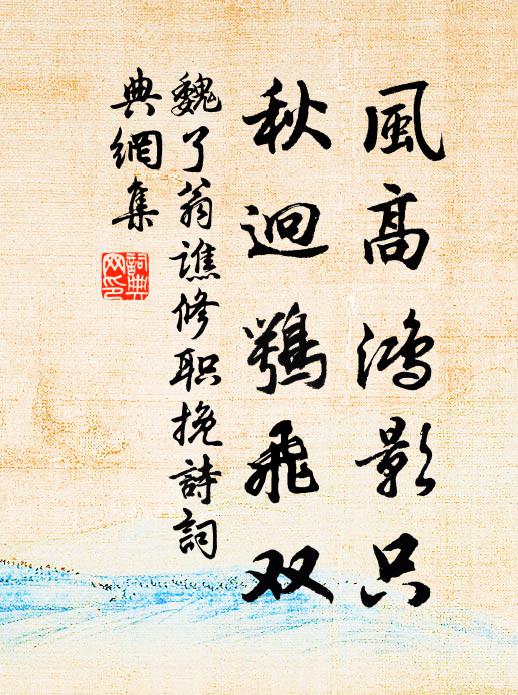 風高鴻影只
秋迥鶚飛双
魏了翁譙修职挽詩詞
典網集
詞典网印